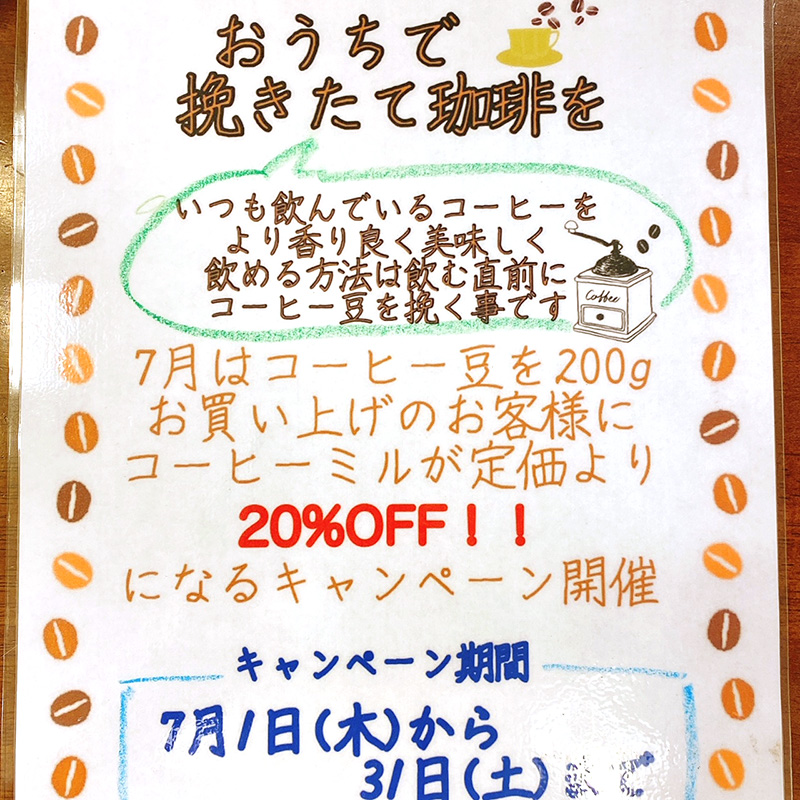 おうちで
挽きたて珈琲を
いつも飲んでいるコーヒーを
より香り良く美味しく
飲める方法は飲む直前に
コーヒー豆を挽く事です
Coffee
7月はコーヒー豆を200g
お買い上げのお客様に
コーヒーミルが定価より
20%OFF！！
になるキャンペーン開催
キャンペーン期間
7月1日(木)から
31日(土)